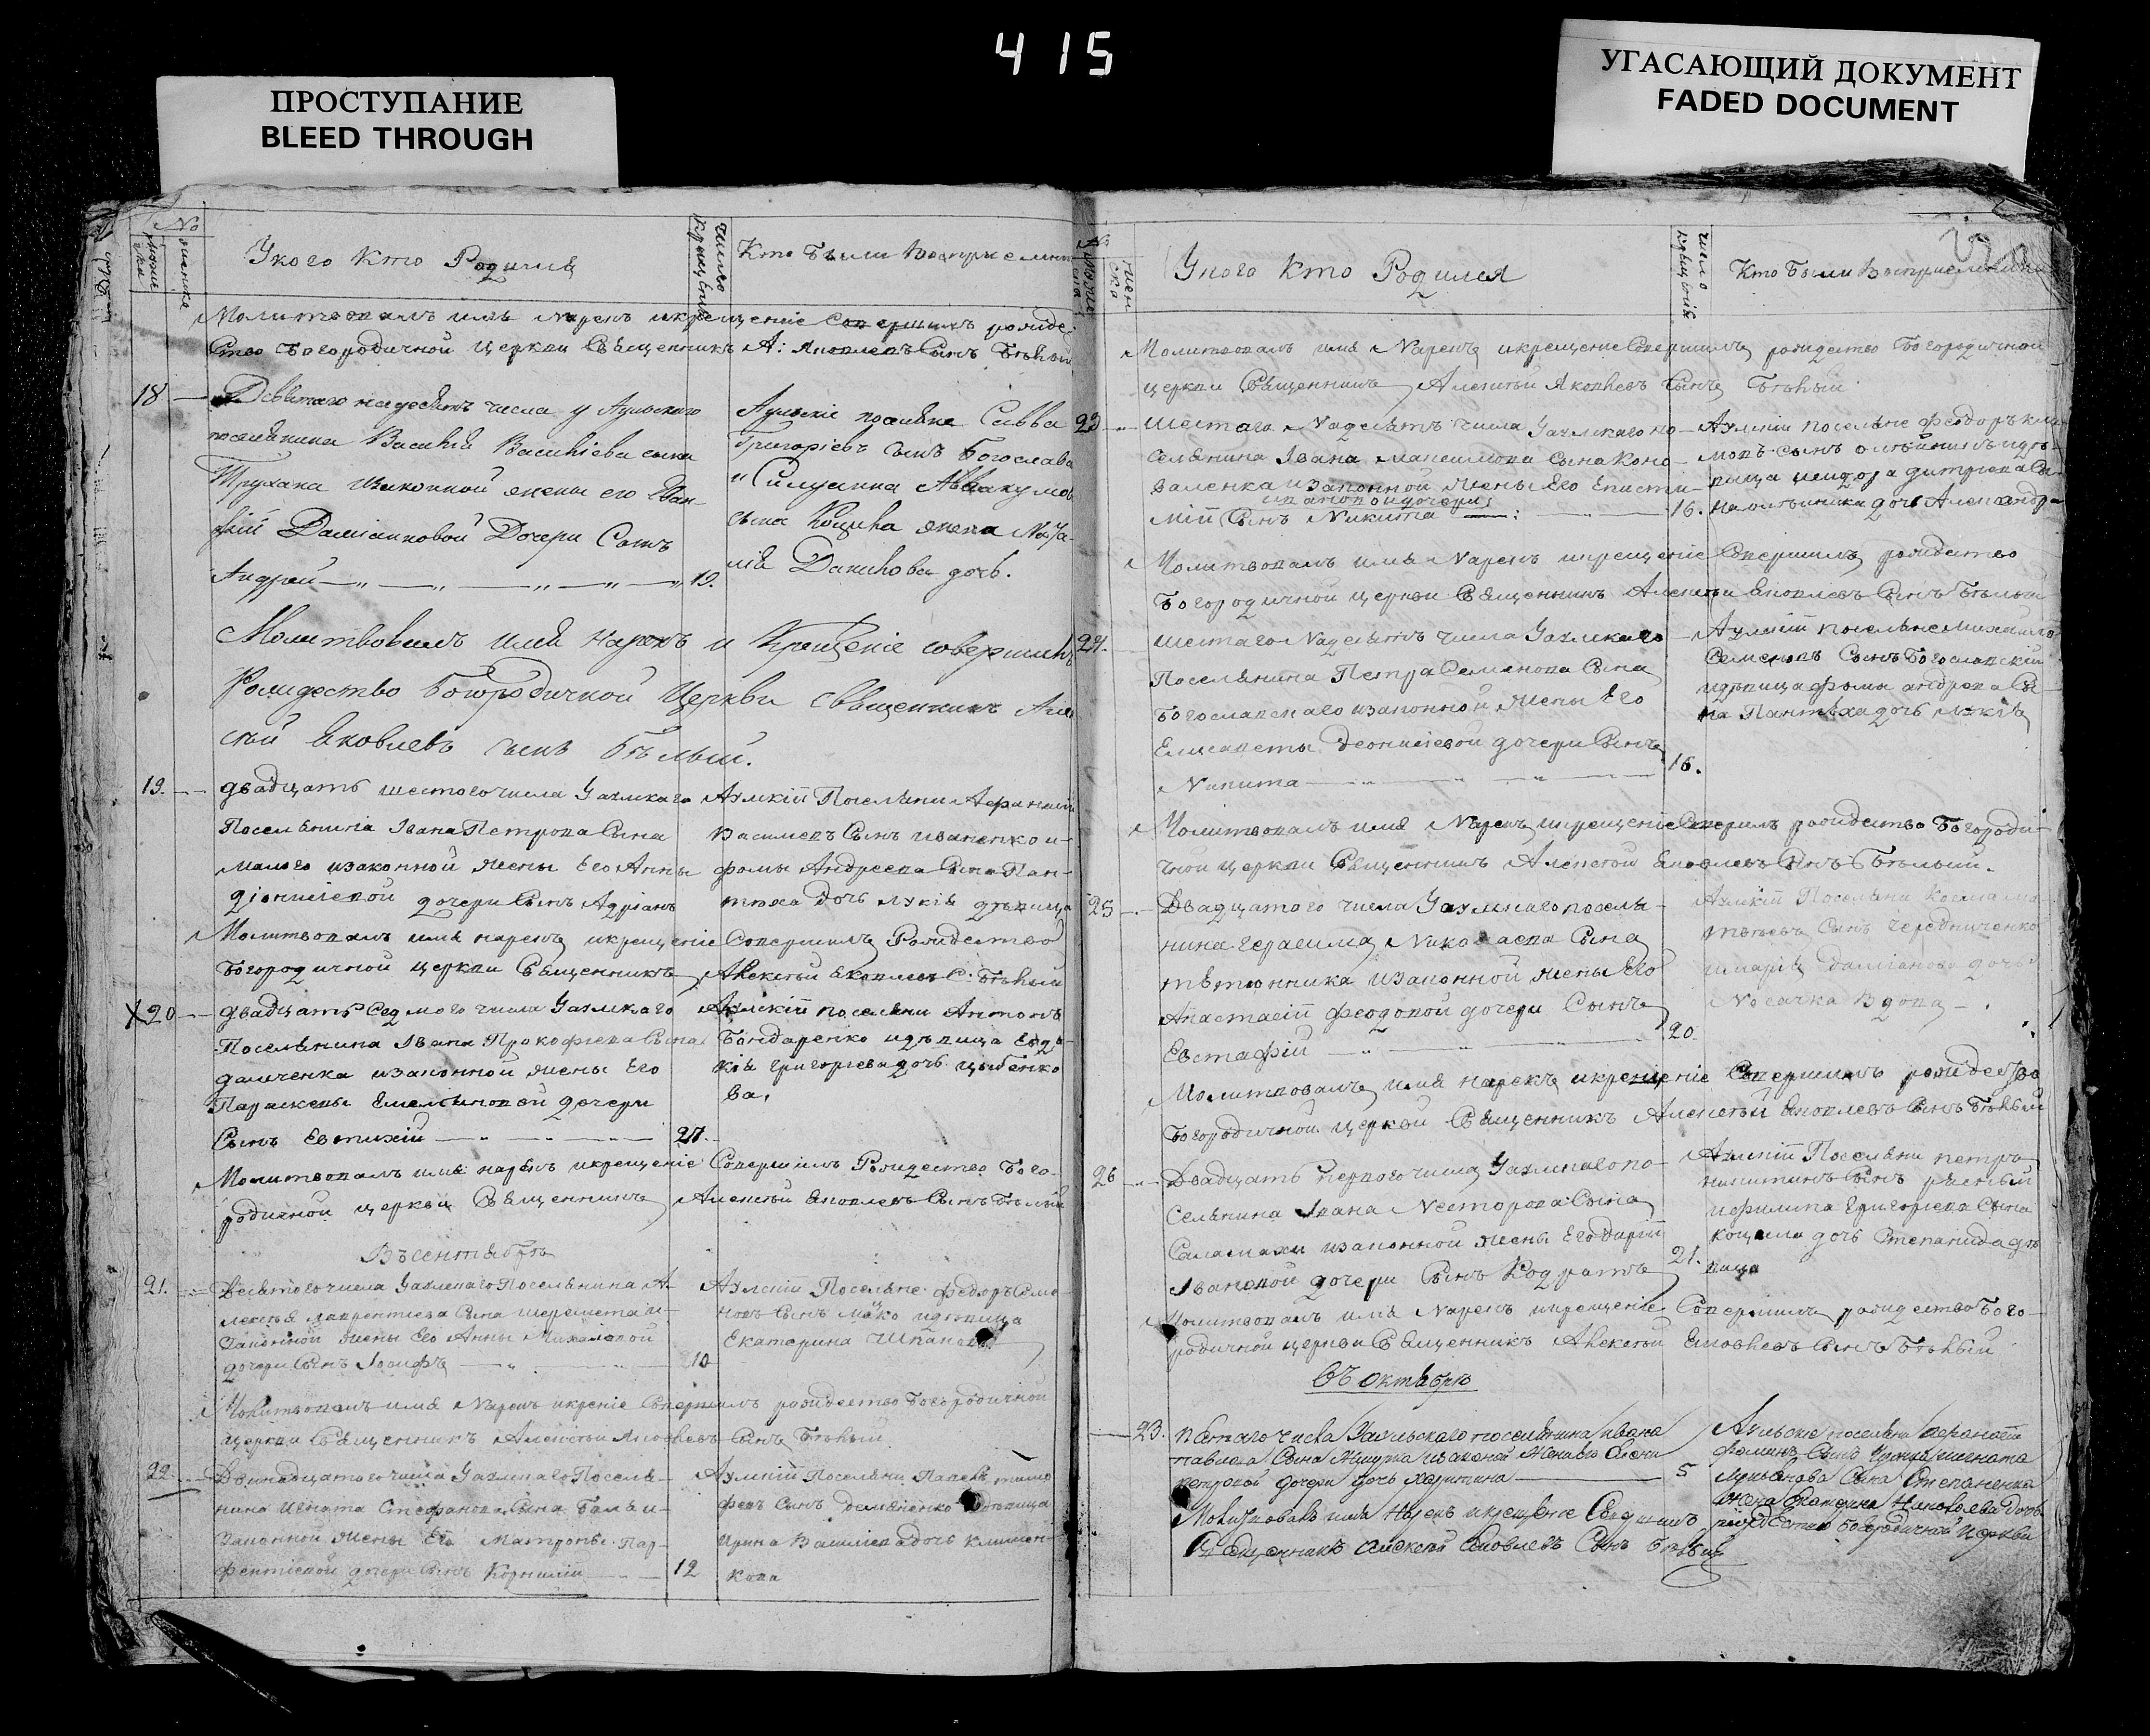 415
ПРОСТУПАНИЕ
BLEED THROUGH
УГАСАЮЩИЙ ДОКУМЕНТ
FADED DOCUMENT
№
Укого Кто Родился
число крещенія
Кто Были Восприемни
Молитвовалъ имя Нарекъ икрещеніе Совершилъ рожде-
Ство Богородичной Церкви Священникъ А: Яковлевъ Сынъ Бѣлый
18
Девятаго надесять числа у Аульскаго
поселянина Василія Василіева сына
Трухана изаконной жены его
Даміановой Дочери Сынъ
Андрей 19.
Аульскіе поселяне Савва
Григоріевъ сынъ Богослава
Аввакумов
сына Коцюба жена
Данилова дочь.
Молитвовалъ имя Нарекъ и Крещеніе совершилъ
Рождество Богородичной Церкви священникъ Алек
сѣй Яковлевъ сынъ Бѣлый.
19.
двадцать шестого числа Уаулскаго
Поселянина Ивана Петрова Сына
малого изаконной жены Его Анны
діонисіевой дочери Сынъ Адріанъ
Аулскій Поселяни Афанасій
Василіевъ Сынъ иваненко и-
фомы Андреева Сына Пан-
тюха дочь Лукія дѣвица
Молитвовалъ имя нарекъ икрещеніе Совершилъ Рождество
Богородичной церкви Священникъ Алексѣй Яковлевъ С: Бѣлый
X 20
двадцать Седмого числа Уаулскаго
Поселянина Ивана Прокофіева Сына
изаконной жены Его
Параскевы Емеліяновой дочери
Сынъ Евтихій 27.
Аулскій поселяни Антонъ
Бондаренко идѣвица Евдо-
кія григоріева дочь цыбенко
ва,
Молитвовалъ имя нарекъ икрещеніе Совершилъ Рождество Бого-
родичной церкви Священникъ Алексѣй Яковлевъ Сынъ Бѣлый
Въ сентябрѣ
21.
Десятого числа Уаулскаго Поселянина А-
лексѣя лаврентіева Сына шеремета и-
Законной жены Его Анны Михаловой
дочери Сынъ Іосифъ 10
Аулскій Поселяне федоръ Семе-
новъ Сынъ идѣвица
Екатерина
Молитвовалъ имя Нарекъ икреніе Совершилъ рождество Богородичной
церкви Священникъ Алексѣй Яковлевъ Сынъ Бѣлый
22
Двинадцатого числа Уаулскаго Поселя-
нина Игната Стефанова Сына
Законной жены Его Матроны Пар-
фентіевой дочери Сынъ Корнилій 12
Аулскій Поселяни Павелъ тимо
феевъ Сынъ демяненко идѣвица
Ирина Василіева дочь климен-
кова
№
Уного Кто Родился
число крещенія
Кто Были Восприемники
Молитвовалъ имя Нарекъ икрещеніе Совершилъ рождество Богородичной
церкви Священникъ Алексѣй Яковлевъ Сынъ Бѣлый
23
шестаго Надесять числа Уаулскаго по-
селянина Ивана Максимова Сына Коно-
валенка изаконной жены Его Еписти-
міи Сынъ Никита 16.
Аулскіи поселяне феодоръ
Александра
Молитвовалъ имя Нарекъ икрещеніе Совершилъ рождество
Богородичной церкви Священникъ Алексѣй Яковлевъ Сынъ Бѣлый
24.
шестаго Надесять числа Уаулскаго
Поселянина Петра Семянова Сына
Богославскаго изаконной жены Его
Елисаветы деонисіевой дочери Сынъ
Никита 16.
Аулскій поселяне михайло
Семеновъ Сынъ Богославскій
идѣвица фомы андрева Сы-
на Пантюха дочь лукія
Молитвовалъ имя Нарекъ икрещеніе Соверилъ рождество Богороди-
чной церкви Священникъ Алексѣй Яковлевъ Сынъ Бѣлый.
25
Двадцатого числа Уаулскаго поселя-
нина герасима Николаева Сына
изаконной жены Его
Анастасіи феодовой дочери Сынъ
Евстафій 20.
Аулскій Поселяни Косма ма-
твѣевъ Сынъ Чередниченко
имарія даміанова дочь
Носачка Вдова
Молитвовалъ имя нарекъ икрещеніе Совершилъ рождество
Богородичной церкви Священникъ Алексѣй Яковлевъ Сынъ Бѣлый
26
Двадцать первого числа Уаулскаго по-
Селянина Ивана Несторова Сына
Саламахи изаконной жены Его Даріи
Івановой дочери Сынъ Кодратъ 21.
Аулскій Поселяни петръ
никитинъ Сынъ
ифилипа Григоріева Сына
дочь Степанида дѣ
вица
Молитвовалъ имя Нарекъ икрещеніе Совершилъ рождество Бого-
родичной церкви Священникъ Алексѣй Яковлевъ Сынъ Бѣлый
Въ октябрѣ
23.
пятаго числа Уаульскаго поселянина ивана
павлова Сына
петровой дочери дочь харитина 5
Аульскіе поселяне
Степаненка
жена Екатерина Николаева Дочь
Молитвовалъ имя Нарекъ икрещеніе Совершилъ рождество богородичной церкви
Священникъ Алексѣй Яковлевъ Сынъ Бѣлый